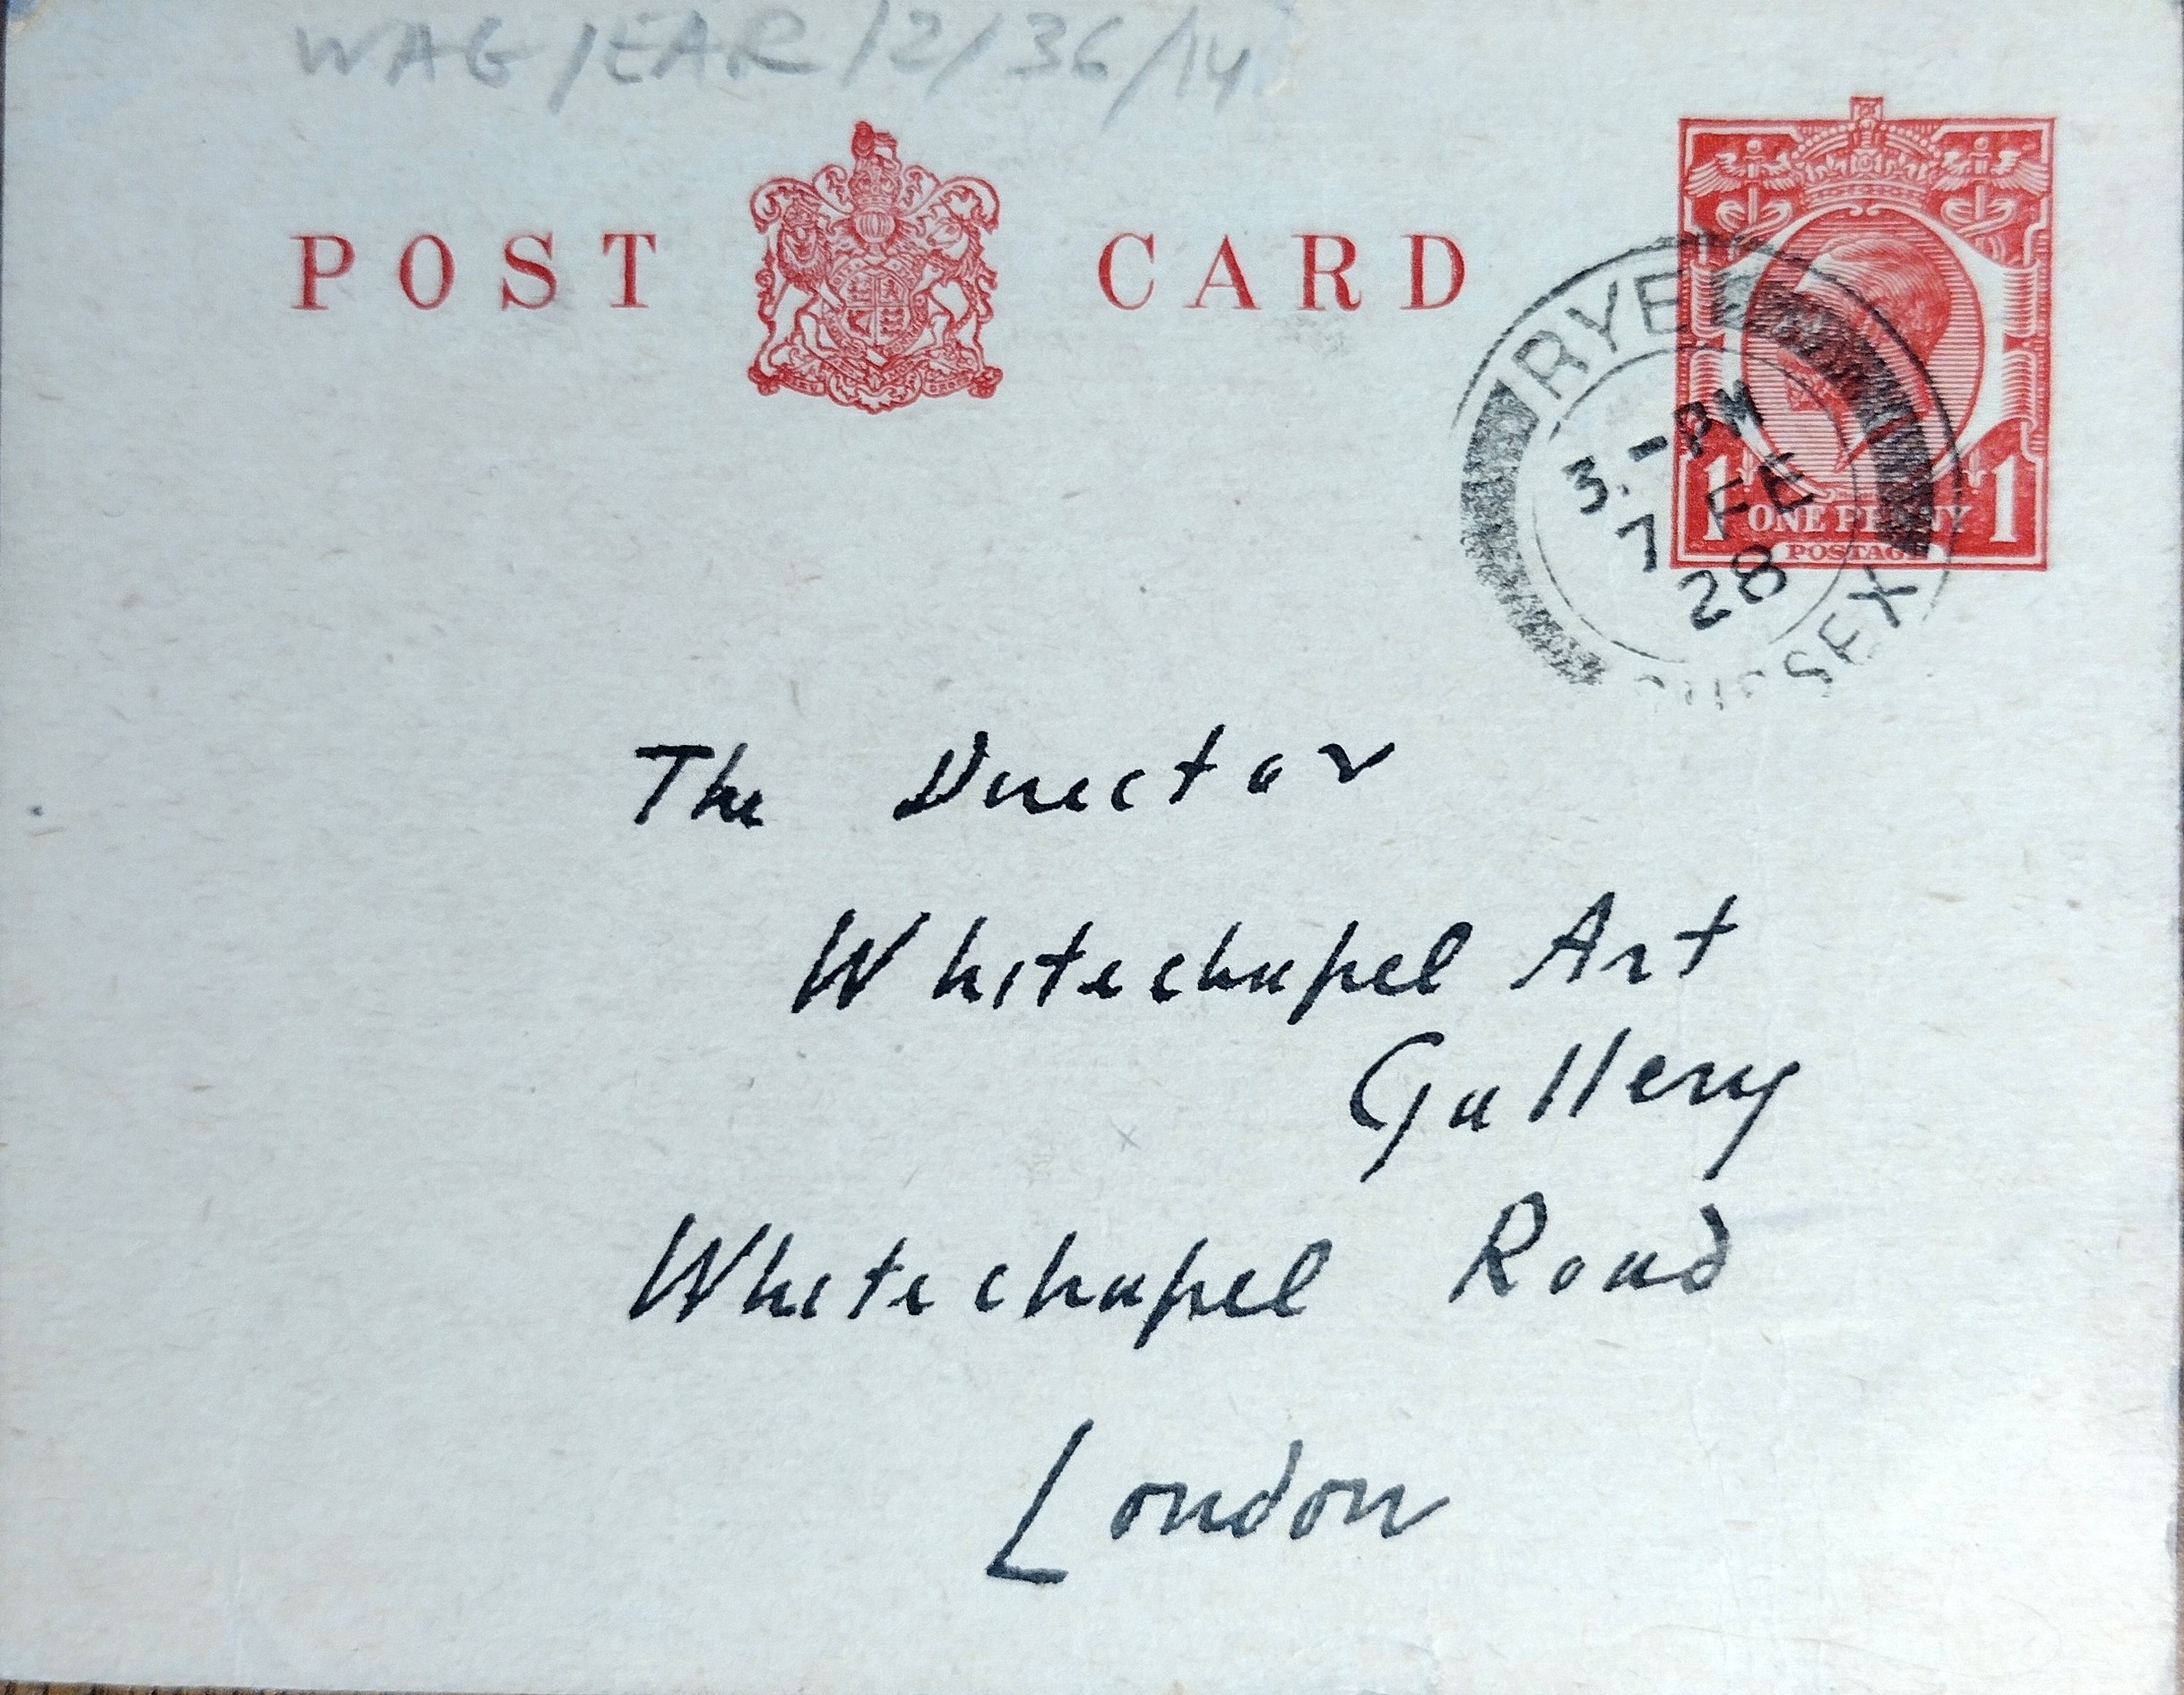 WAG/EAR/2/36/14
POST CARD
RYE
3.-PM
7 FE
28
SUSSEX
1 ONE PENNY 1
POSTAGE
The Director
Whitechapel Art
Gallery
Whitechapel Road
London